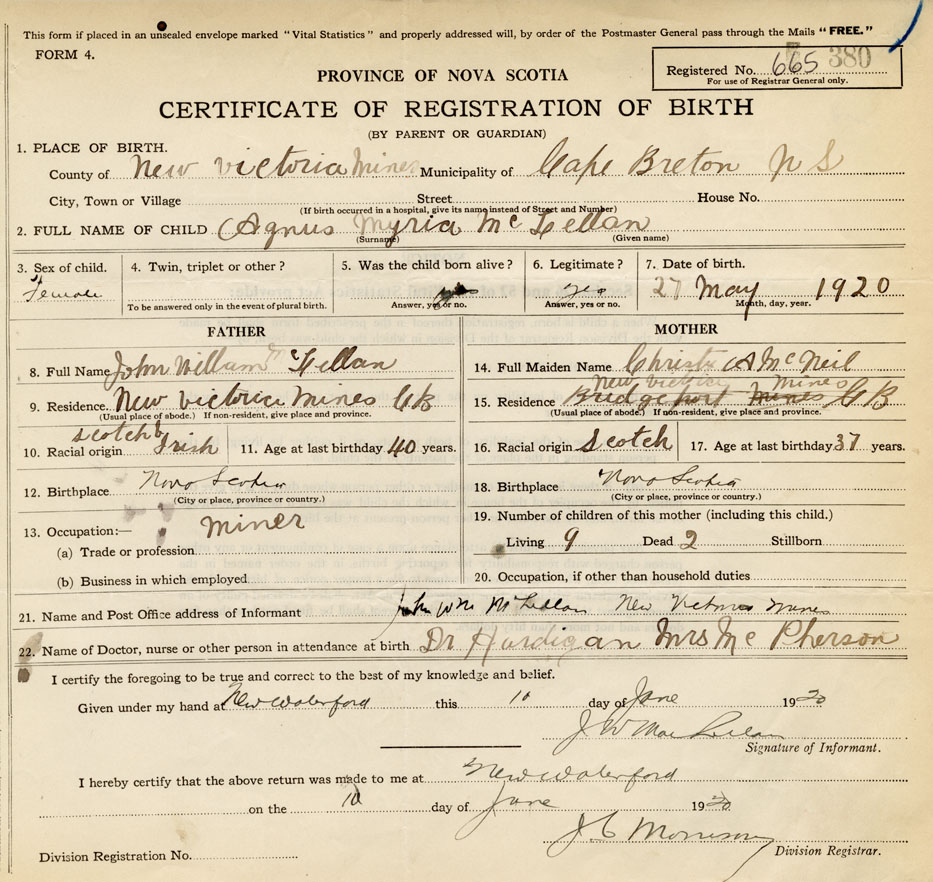 This form if placed in an unsealed envelope marked "Vital Statistics" and properly addressed will, by order of the Postmaster General pass through the Mails "FREE."
FORM 4.
Registered No. 665 380
For use of Registrar General only.
PROVINCE OF NOVA SCOTIA
CERTIFICATE OF REGISTRATION OF BIRTH
(BY PARENT OR GUARDIAN)
1. PLACE OF BIRTH.
County of New Victoria Mines Municipality of Cape Breton N S
City, Town or Village Street House No.
(If birth occurred in a hospital, give its name instead of Street and Number)
2. FULL NAME OF CHILD Agnus Myria Mc Lellan
(Surname) (Given name)
3. Sex of child. 4. Twin, triplet or other? 5. Was the child born alive? 6. Legitimate? 7. Date of birth.
Female yes yes 27 May 1920
To be answered only in the event of plural birth. Answer, yes or no. Answer, yes or no. Month, day, year.
FATHER MOTHER
8. Full Name John William Mc Lellan 14. Full Maiden Name Christy A McNeil
New Victoria Mines
9. Residence New Victoria Mines CB 15. Residence Bridgeport Mines CB
(Usual place of abode.) If non-resident, give place and province. (Usual place of abode.) If non-resident, give place and province.
Scotch &
10. Racial origin Irish 11. Age at last birthday 40 years. 16. Racial origin Scotch 17. Age at last birthday 37 years.
12. Birthplace Nova Scotia 18. Birthplace Nova Scotia
(City or place, province or country.) (City or place, province or country.)
13. Occupation:— Miner 19. Number of children of this mother (including this child.)
(a) Trade or profession Living 9 Dead 2 Stillborn
(b) Business in which employed 20. Occupation, if other than household duties
21. Name and Post Office address of Informant John Wm McLellan New Victoria Mines
22. Name of Doctor, nurse or other person in attendance at birth Dr Hardigan Mrs Mc Pherson
I certify the foregoing to be true and correct to the best of my knowledge and belief.
Given under my hand at New Waterford this 10 day of June 1920
J W MacLellan
Signature of Informant.
I hereby certify that the above return was made to me at New Waterford
on the 10 day of June 1920
J C Morrison
Division Registrar.
Division Registration No.